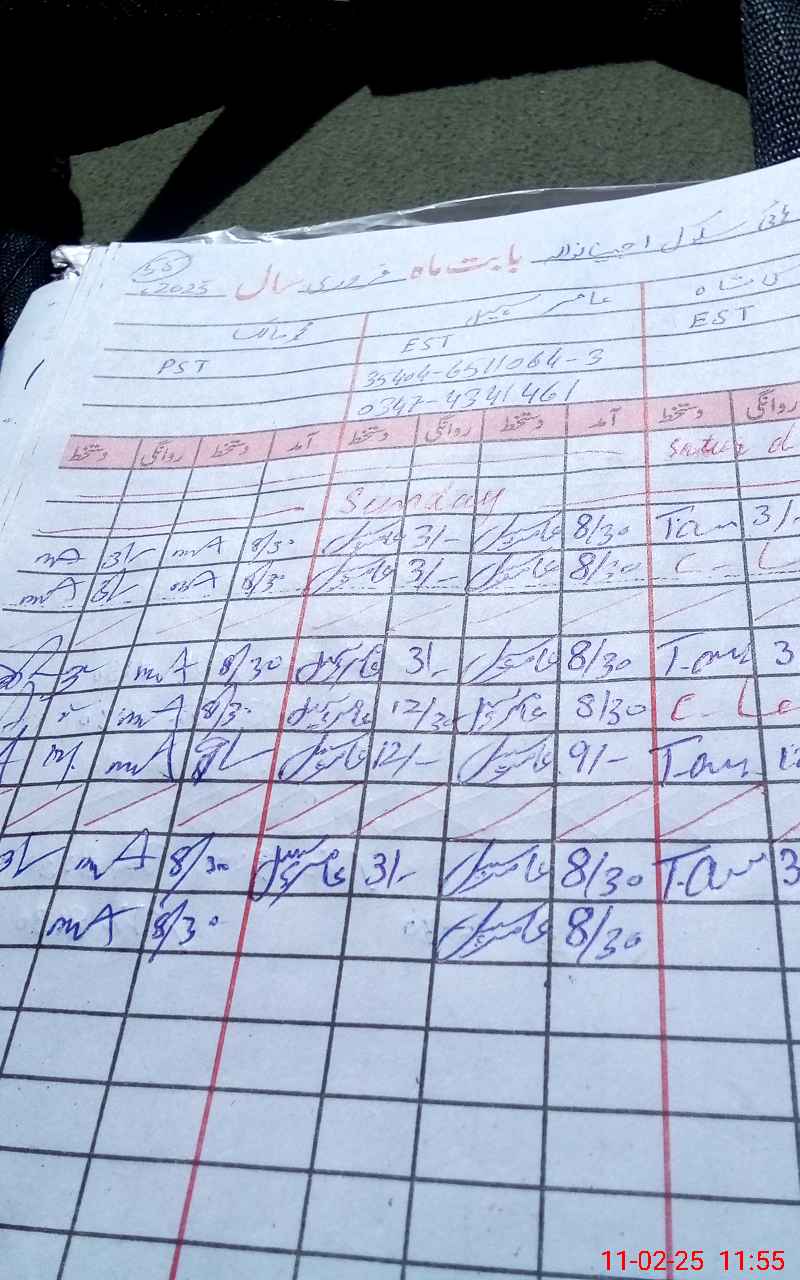 55
سکول احسانوالہ بابت ماہ فروری سال 2025ء
شاہ عامر سہیل محمد مالک
EST EST PST
35404-6511064-3
0347-4341461
روانگی دستخط آمد دستخط روانگی دستخط آمد دستخط روانگی دستخط
Satur d
Sunday
mA 3/- mA 8/30 عامر سہیل 3/- عامر سہیل 8/30 Tam 3/-
mA 3/- mA 8/30 عامر سہیل 3/- عامر سہیل 8/30 C- L
mA 8/30 عامر سہیل 3/- عامر سہیل 8/30 T.am 3
mA 8/30 عامر سہیل 12/30 عامر سہیل 8/30 C- Le
mA 9/- عامر سہیل 12/- عامر سہیل 9/- T.am 12
3/- mA 8/30 عامر سہیل 3/- عامر سہیل 8/30 T.am 3
mA 8/30 عامر سہیل 8/30
11-02-25 11:55